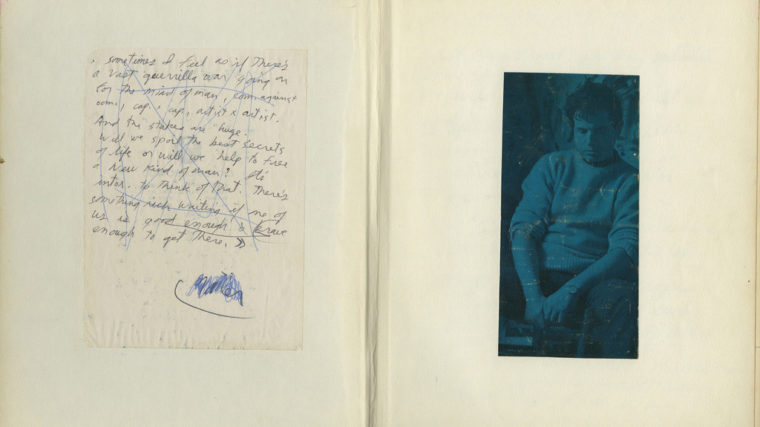 . sometimes I feel as if there's
a vast guerrilla war going on
for the mind of man, communist
com., cap. × cap, artist × artist.
And the stakes are huge.
Will we spoil the best secrets
of life or will we help to free
a new kind of man? It's
intox. to think of that. There's
something rich waiting if one of
us is good enough & brave
enough to get there. »